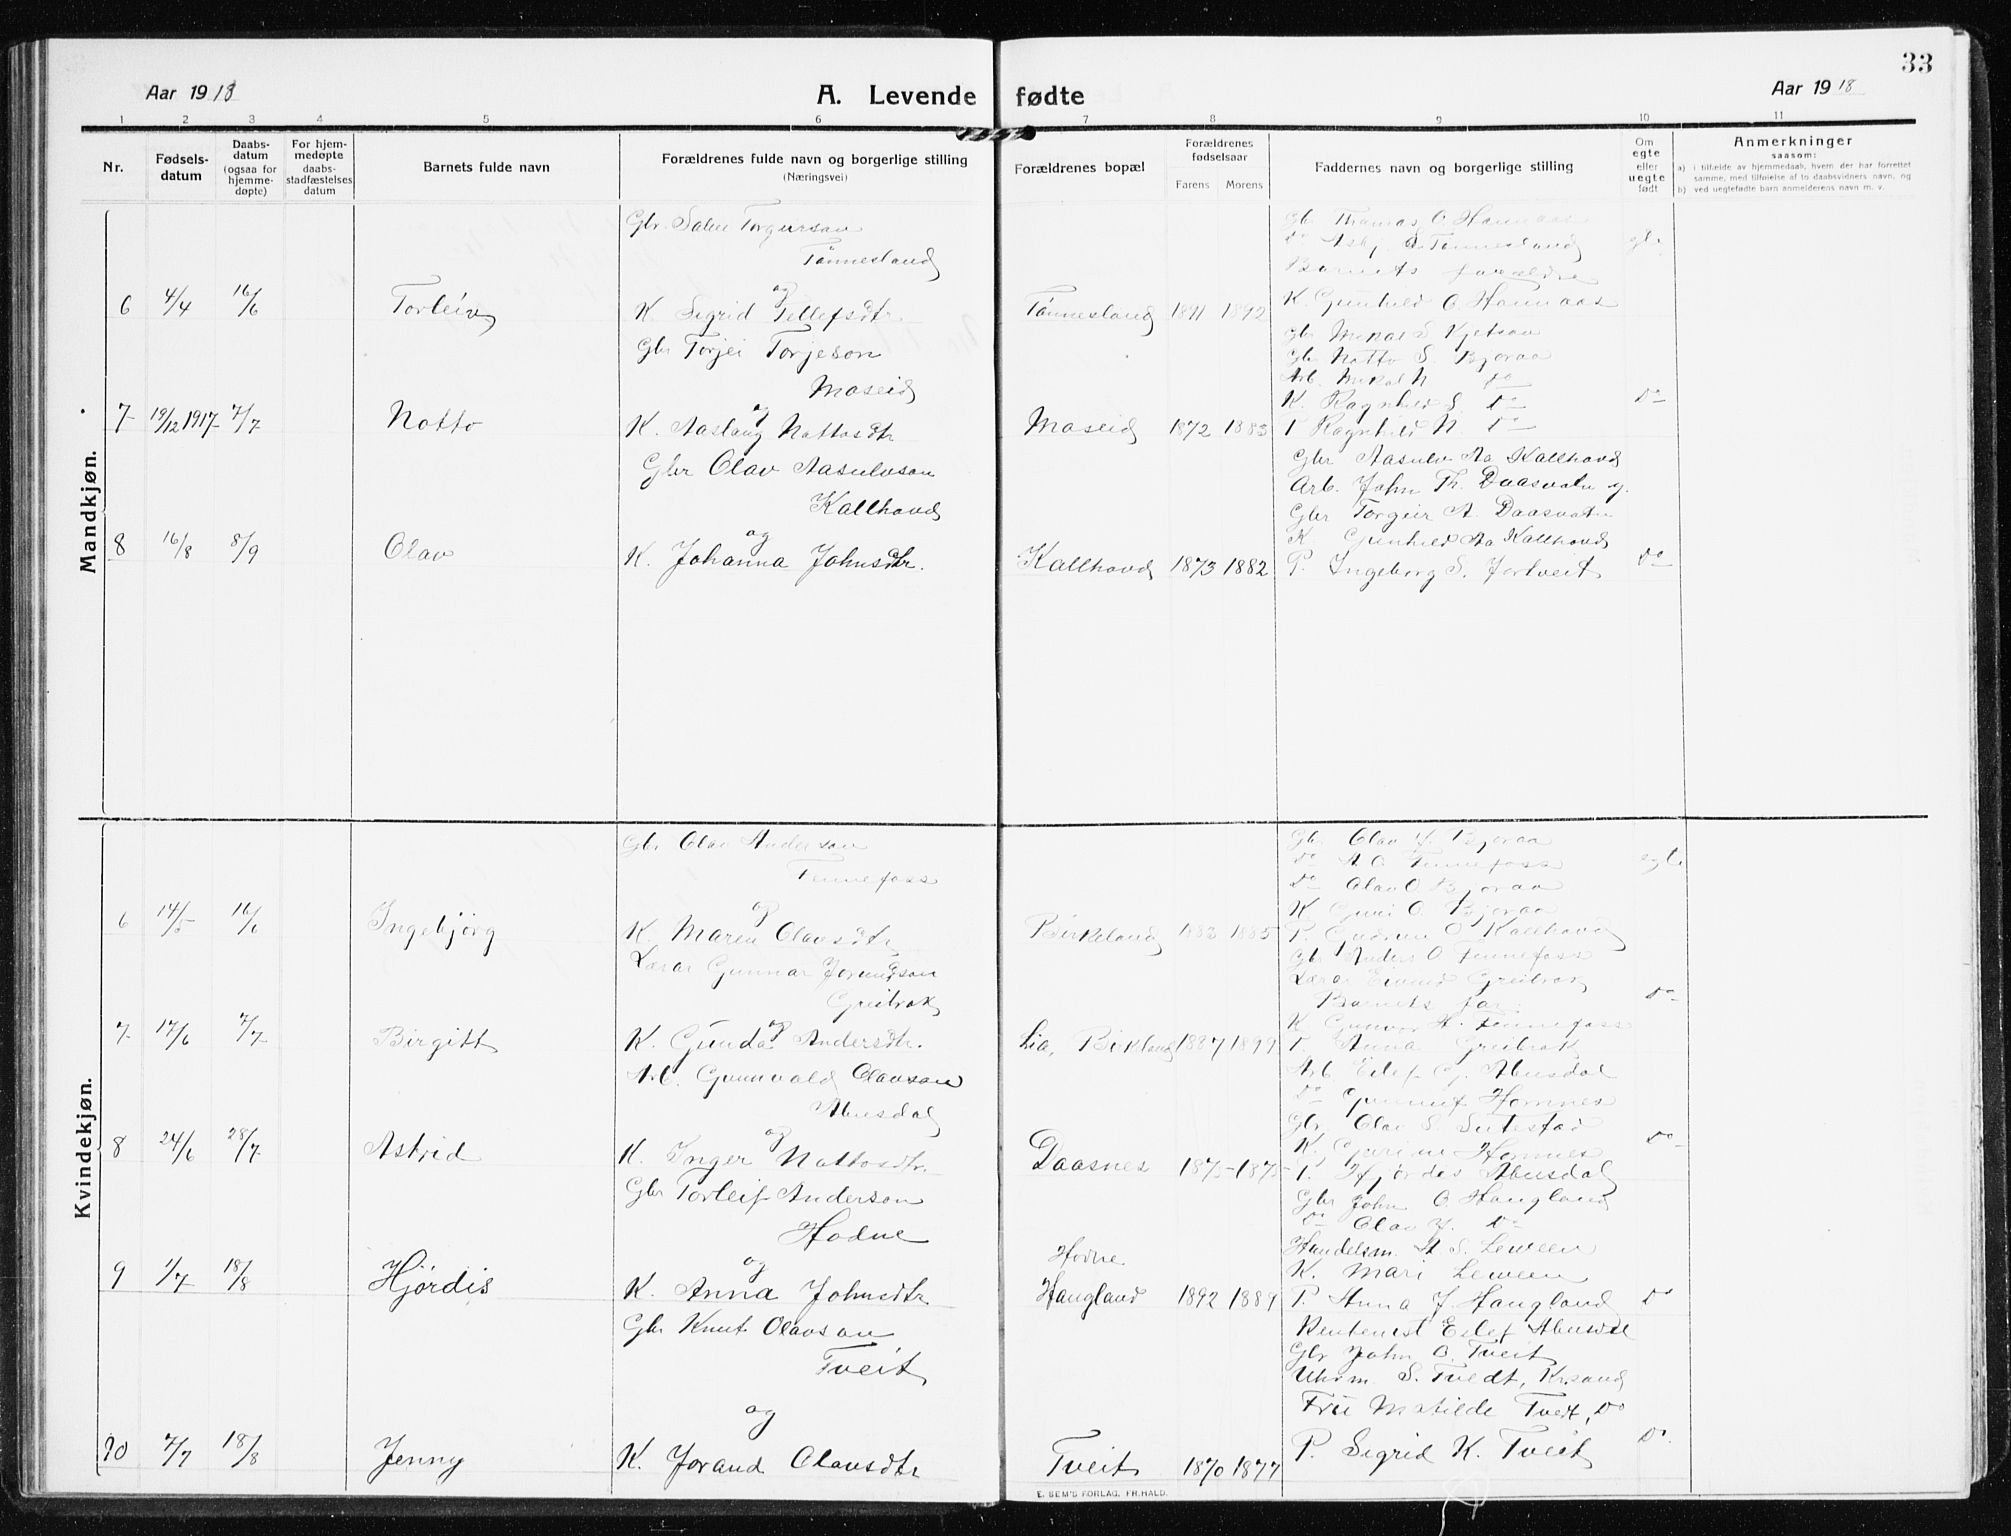 33
Aar 1918 A. Levende fødte Aar 1918
1 2 3 4 5 6 7 8 9 10 11
Nr. Fødselsdatum Daabsdatum (ogsaa for hjemmedøpte) For hjemmedøpte daabsstadfæstelses datum Barnets fulde navn Forældrenes fulde navn og borgerlige stilling (Næringsvei) Forældrenes bopæl Forældrenes fødselsaar Farens Morens Faddernes navn og borgerlige stilling Om egte eller uegte født Anmerkninger
saasom:
a) i tilfælde av hjemmedaab, hvem der har forrettet
samme, med tilføielse af to daabsvidners navn, og
b) ved uegtefødte barn anmelderens navn m. v.
Mandkjøn.
Gbr. Salve Torgeirson
Tønnesland
og
6 4/4 16/6 Torleiv K. Sigrid Tellefsdtr Tønnesland 1891 1892
Gbr Thomas O. Hannaas
Do Asbj. Tønnesland
Barnets forældre
K. Gunhild O. Hannaas
Gbr Torjei Torjeson
Moseid
og
7 19/12 1917 7/7 Notto K. Aaslaug Nottosdtr Moseid 1872 1883 Do
Gbr Mikal S. Kjetsaa
Gbr Notto S. Bjoraa
Arb. Mikal N. Do
K. Ragnhild S. Do
P Ragnhild N. Do
Gbr Olav Aasulvson
Kallhovd
og
8 16/8 8/9 Olav K. Johanna Johnsdtr. Kallhovd 1873 1882 Do
Gbr Aasulv Aa Kallhovd
Arb. John Th. Daasvatn y.
Gbr Torgeir A. Daasvatn
K Gunhild Aa Kallhovd
P. Ingeborg S. Jortveit
Kvindekjøn.
Gbr Olav Anderson
Fennefoss
og
6 14/5 16/6 Ingebjørg K. Maren Olavsdtr Birkeland 1883 1885 egte
Gbr Olav J. Bjoraa
Do A O Fennefoss
Do Olav O Bjoraa
K Guri O. Bjoraa
P. Gudrun O Kallhovd
Lærar Gunnar Jorundson
Greibrok
og
7 17/6 7/7 Birgitt K. Gunda Andersdtr. Lia, Birkeland 1887 1899 Do
Gbr Anders O Fennefoss
Lærar Eivind Greibrok
Barnets far
K Gunvor A. Fennefoss
P. Anna Greibrok
Arb. Gunvald Olavson
Abusdal
og
8 24/6 28/7 Astrid K. Inger Nottosdtr. Daasnes 1875 1875 Do
Arb. Eilef G. Abusdal
Do Gunnuf Homnes
Gbr Olav S.
K. Homnes
P. Hjørdis Abusdal
Gbr Torleif Anderson
Hodne
og
9 1/7 18/8 Hjørdis K. Anna Johnsdtr Hodne Haugland 1892 1889 Do
Gbr John O Haugland
Do Olav J. Do
Handelsm. A. S. Leween
K. Mari Leween
P. Anna J. Haugland
Gbr Knut Olavson
Tveit
og
10 7/7 18/8 Jenny K. Jorand Olavsdtr Tveit 1870 1877 Do
Rentenist Eilef Abusdal
Gbr John O. Tveit
Uhrm. S. Tvedt, Krsand
Fru Matilde Tvedt, Do
P. Sigrid K. Tveit
E. SEM'S FORLAG, FR.HALD.